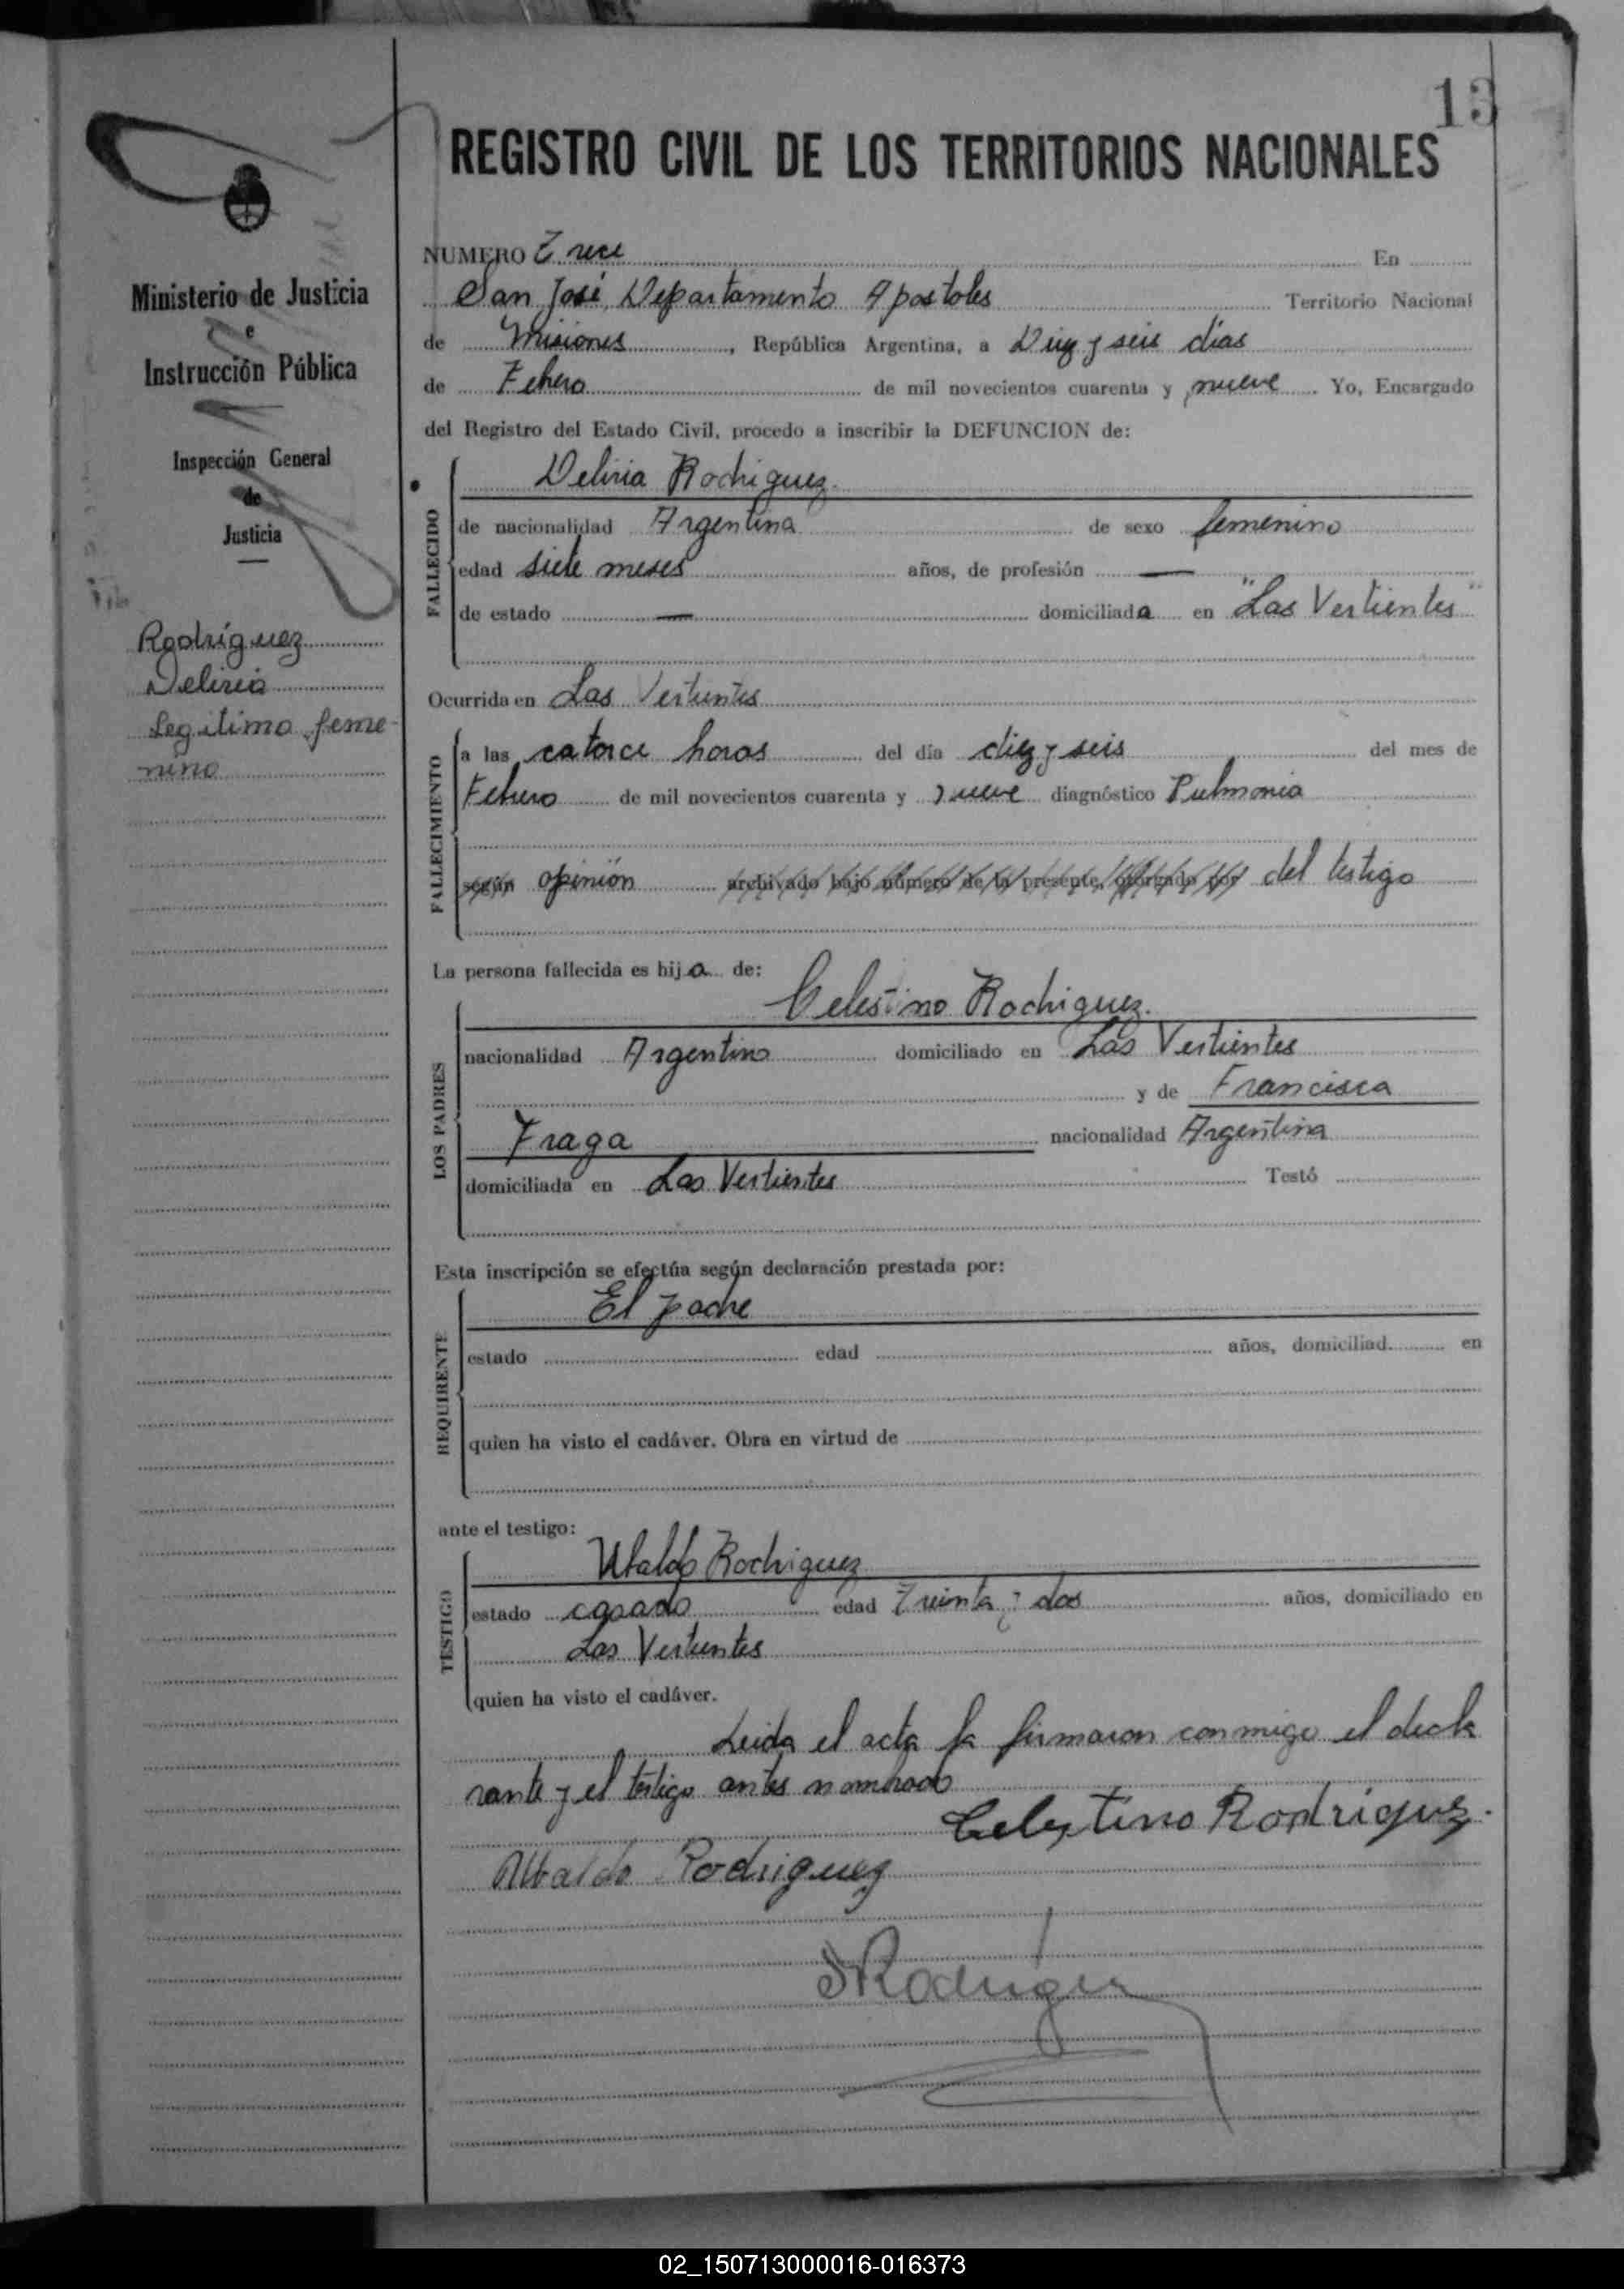 13
REGISTRO CIVIL DE LOS TERRITORIOS NACIONALES
Ministerio de Justicia
e
Instrucción Pública
Inspección General
de
Justicia
Rodríguez
Deliria
Legitimo feme-
nino
NUMERO Trece En
San José, Departamento Apostoles Territorio Nacional
de Misiones, República Argentina, a Diez y seis días
de Febrero de mil novecientos cuarenta y nueve Yo, Encargado
del Registro del Estado Civil, procedo a inscribir la DEFUNCION de:
FALLECIDO
Deliria Rodriguez.
de nacionalidad Argentina de sexo femenino
edad siete meses años, de profesión —
de estado — domiciliada en "Las Vertientes"
Ocurrida en Las Vertientes
FALLECIMIENTO
a las catorce horas del día diez y seis del mes de
Febrero de mil novecientos cuarenta y nueve diagnóstico Pulmonia
según opinión archivado bajo número de la presente, otorgado por del testigo
La persona fallecida es hija de:
LOS PADRES
Celestino Rodriguez.
nacionalidad Argentino domiciliado en Las Vertientes
y de Francisca
Fraga nacionalidad Argentina
domiciliada en Las Vertientes Testó
Esta inscripción se efectúa según declaración prestada por:
REQUIRENTE
El padre
estado edad años, domiciliad en
quien ha visto el cadáver. Obra en virtud de
ante el testigo:
TESTIGO
Ubaldo Rodriguez
estado casado edad Treinta y dos años, domiciliado en
Las Vertientes
quien ha visto el cadáver.
Leida el acta la firmaron conmigo el decla
rante y el testigo antes nombrado
Celestino Rodriguez.
Ubaldo Rodriguez
02_150713000016-016373